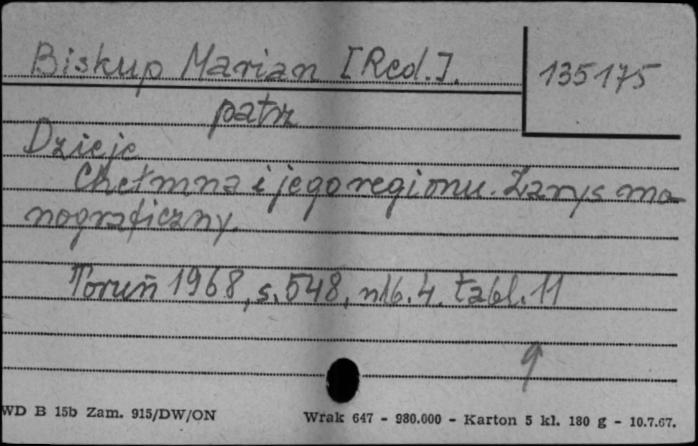 Biskup Marian [Red.].
135175
patrz
Dzieje
Chełmna i jego regionu. Zarys mo-
nograficzny.
Toruń 1968, s. 548, nlb. 4. tabl. 11
9
WD B 15b Zam. 915/DW/ON
Wrak 647 - 980.000 - Karton 5 kl. 180 g - 10.7.67.